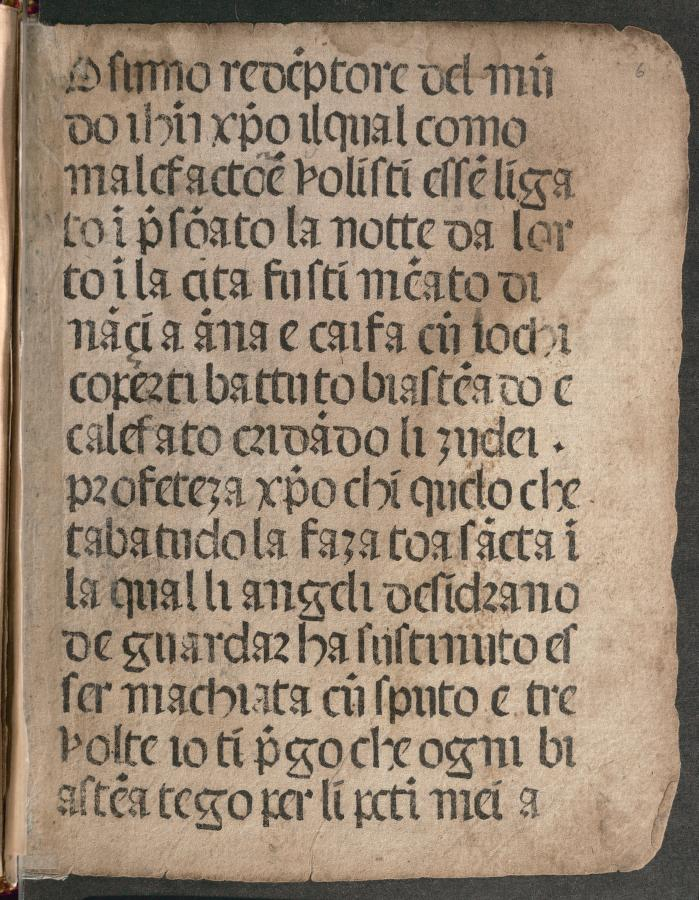 O sumo redēptore del mū
do ihū xp̄o ilqual como
malefactoē volisti essē liga
to ī p̄sōato la notte da lor
to ī la cita fusti mēato di
nāçi a āna e caifa cū iochi
coperti battuto biastēado e
calefato cridādo li zudei ·
profeteza xp̄o chi quelo che
ta batudo la faza toa sācta ī
la qual li angeli desidrano
de guardar ha sustinuto es
ser machiata cū sputo e tre
volte io ti p̄go che ogni bi
astēa tego per li pcti mei a
6